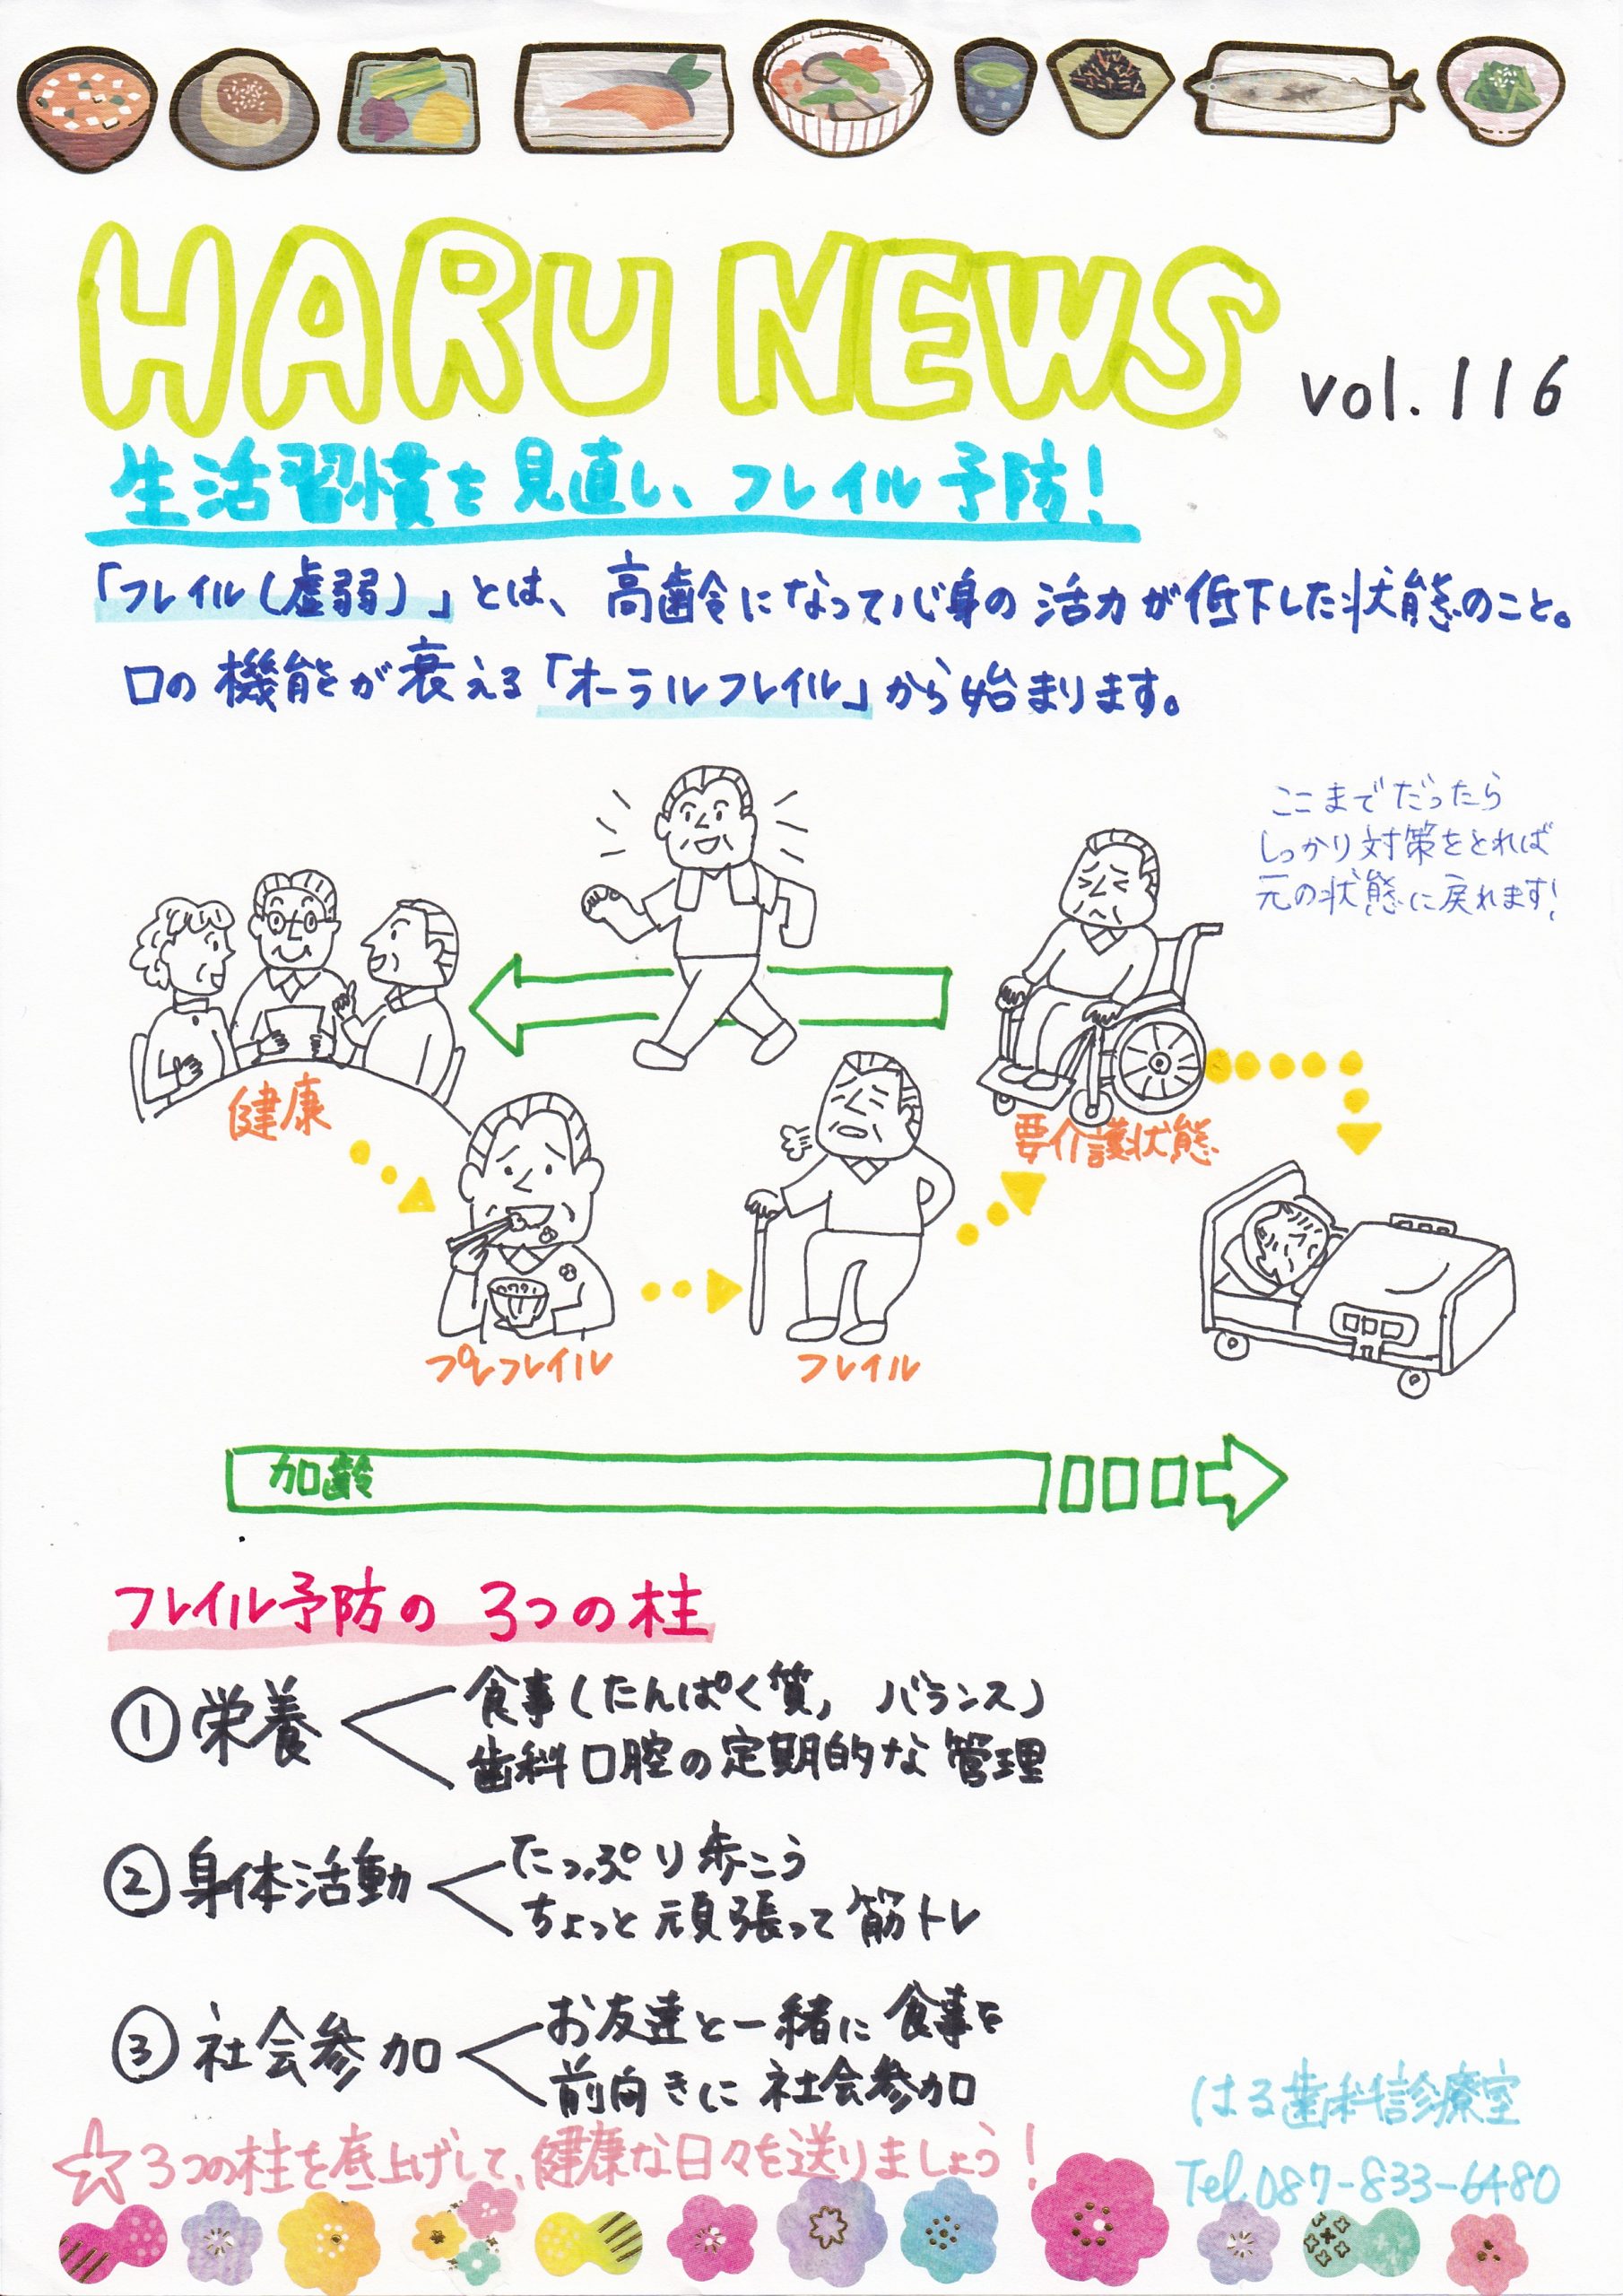 HARU NEWS vol.116
生活習慣を見直し、フレイル予防!
「フレイル(虚弱)」とは、高齢になって心身の活力が低下した状態のこと。
口の機能が衰える「オーラルフレイル」から始まります。
ここまでだったら
しっかり対策をとれば
元の状態に戻れます!
健康
要介護状態
プレフレイル
フレイル
加齢
フレイル予防の 3つの柱
① 栄養
食事(たんぱく質, バランス)
歯科口腔の定期的な管理
② 身体活動
たっぷり歩こう
ちょっと頑張って筋トレ
③ 社会参加
お友達と一緒に食事を
前向きに社会参加
☆3つの柱を底上げして、健康な日々を送りましょう!
はる歯科診療室
Tel.087-833-6480